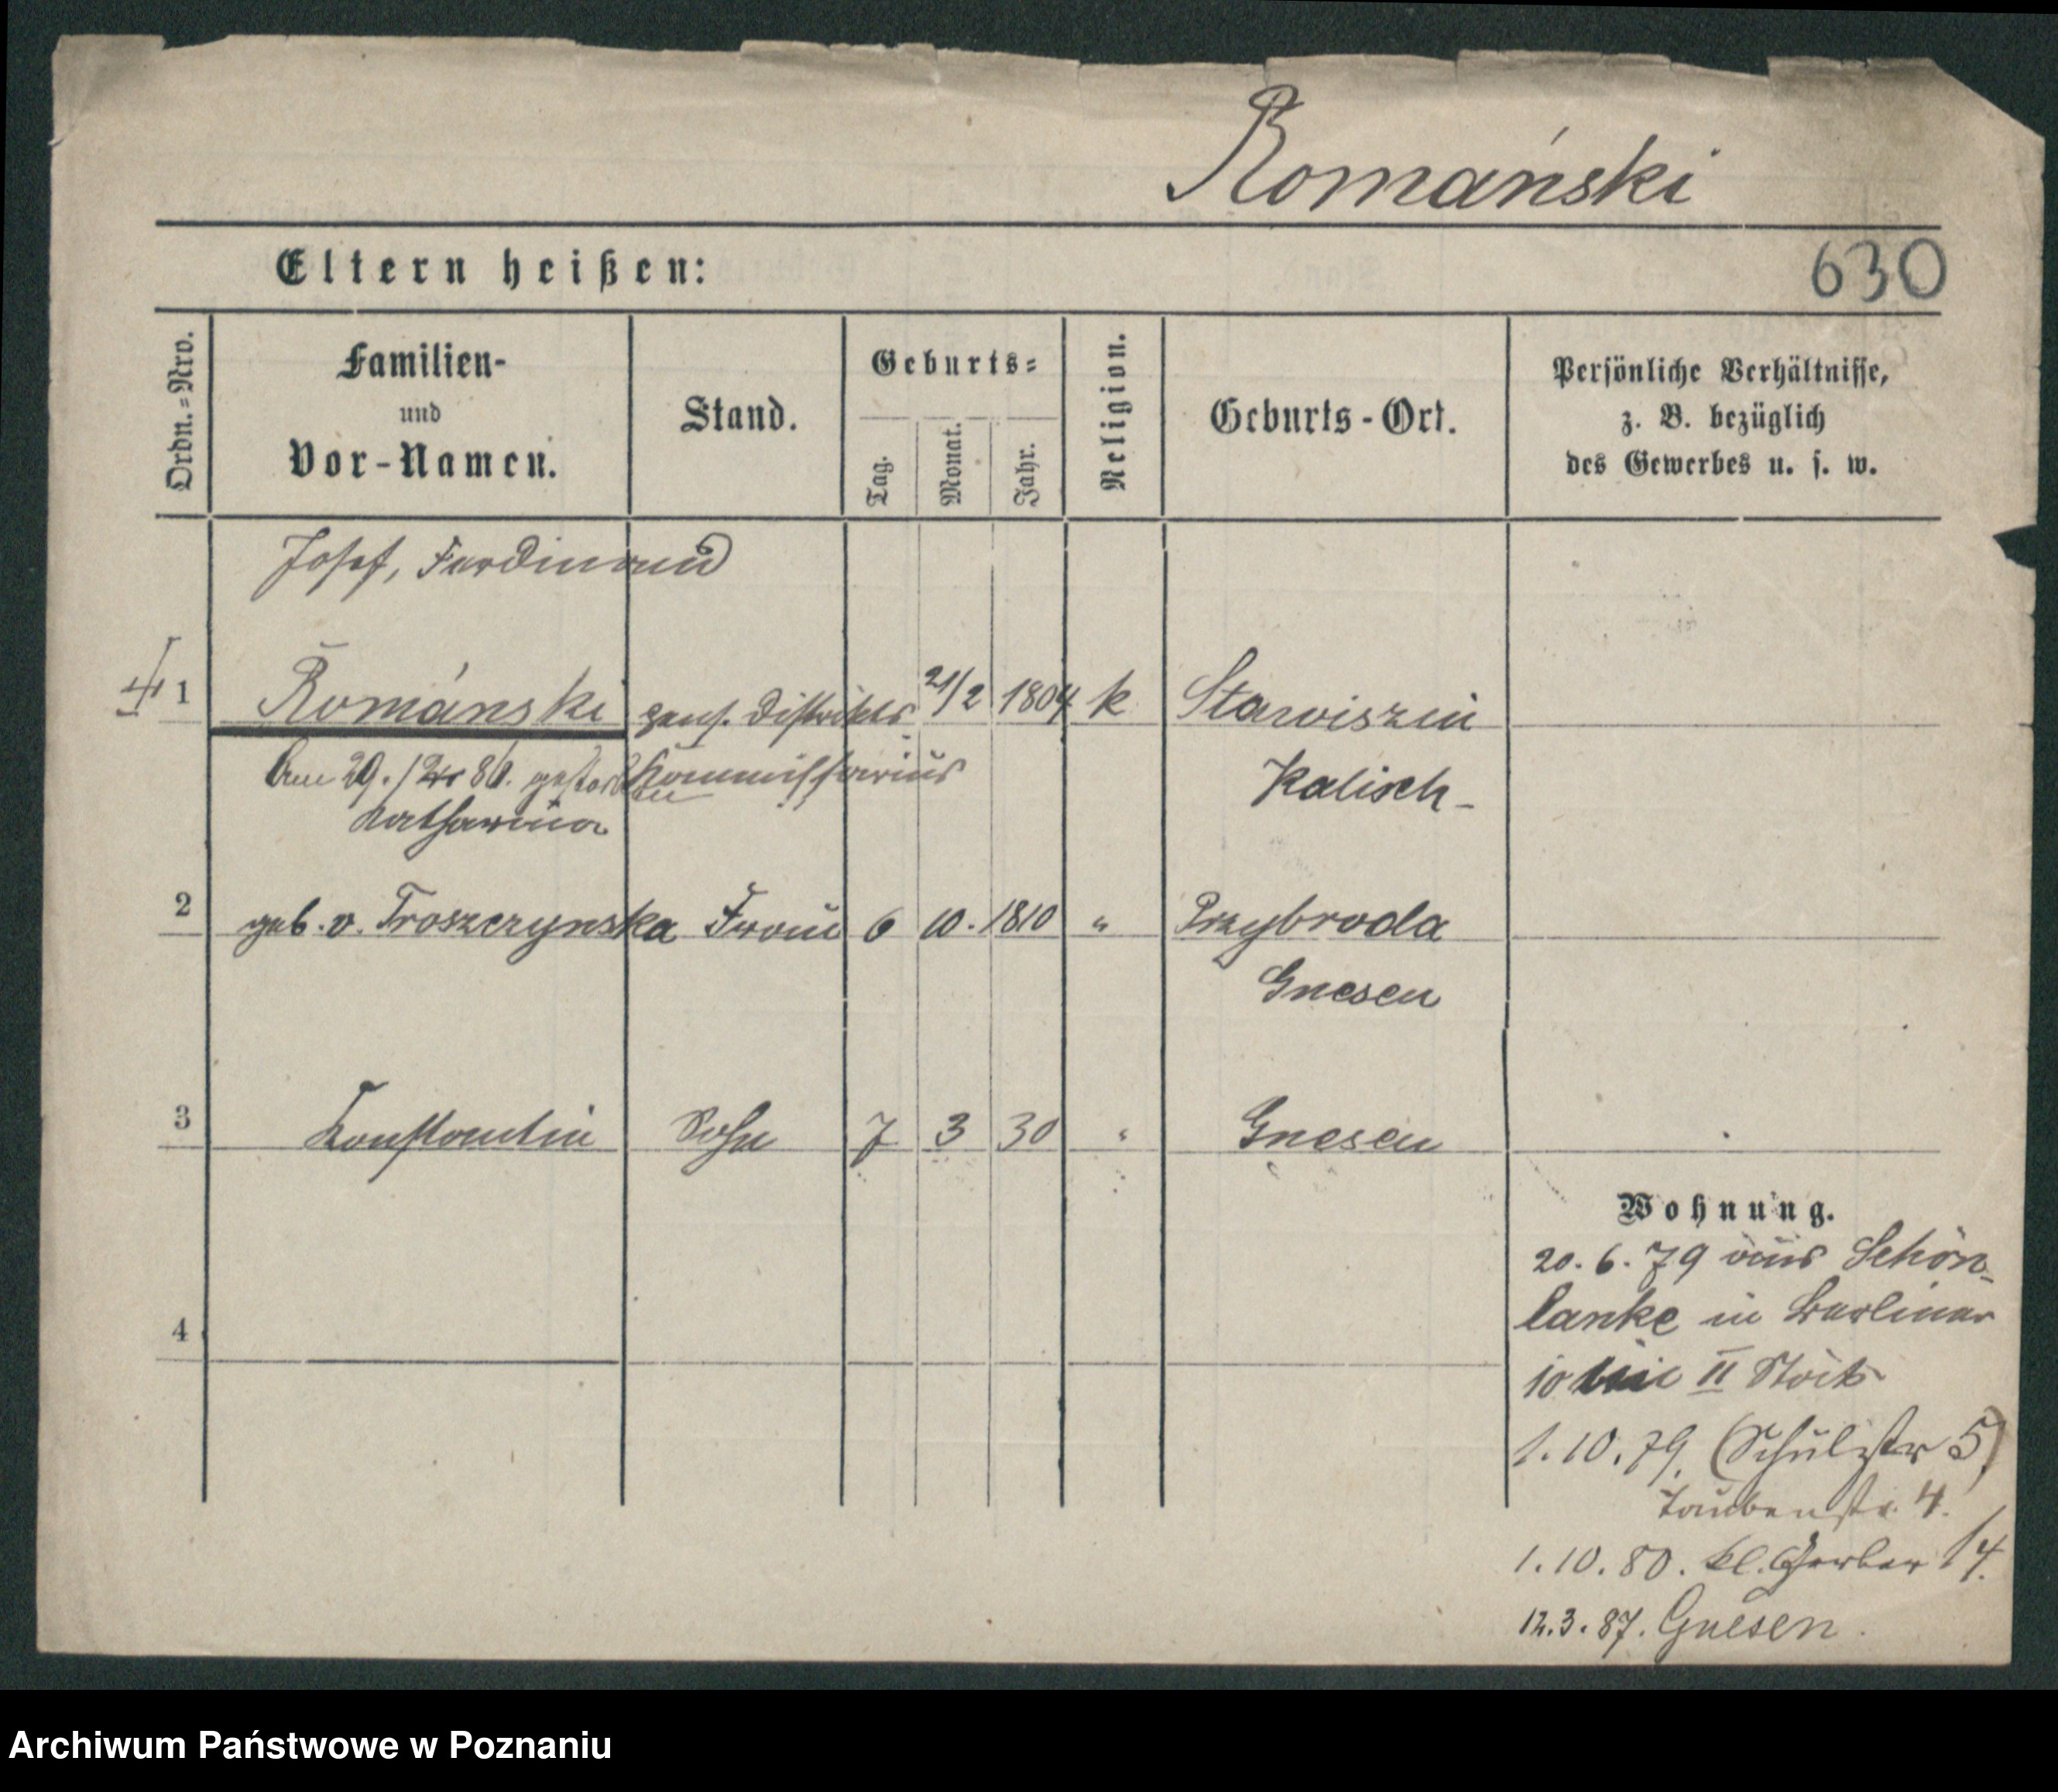 Romański
Eltern heißen:
630
Ordn.-Nro.
Familien-
und
Vor-Namen.
Stand.
Geburts-
Tag.
Monat.
Jahr.
Religion.
Geburts-Ort.
Persönliche Verhältnisse,
z. B. bezüglich
des Gewerbes u. s. w.
Josef, Ferdinand
1 Románski pens. Distrikts 21/2 1804 k Stawiszin
Am 29. 86. gestorben Kommissarius Kalisch
Katharina
2 geb. v. Troszczynska Frau 6 10. 1810 " Przybroda
Gnesen
3 Konstantin Sohn 7 3 30 " Gnesen
Wohnung.
20. 6. 79 aus Schön-
lanke in Berliner
10 II Stock
4
1. 10. 79. (Schulzstr 5)
Taubenstr. 4.
1. 10. 80. kl. Gerber 14.
12. 3. 87. Gnesen.
Archiwum Państwowe w Poznaniu